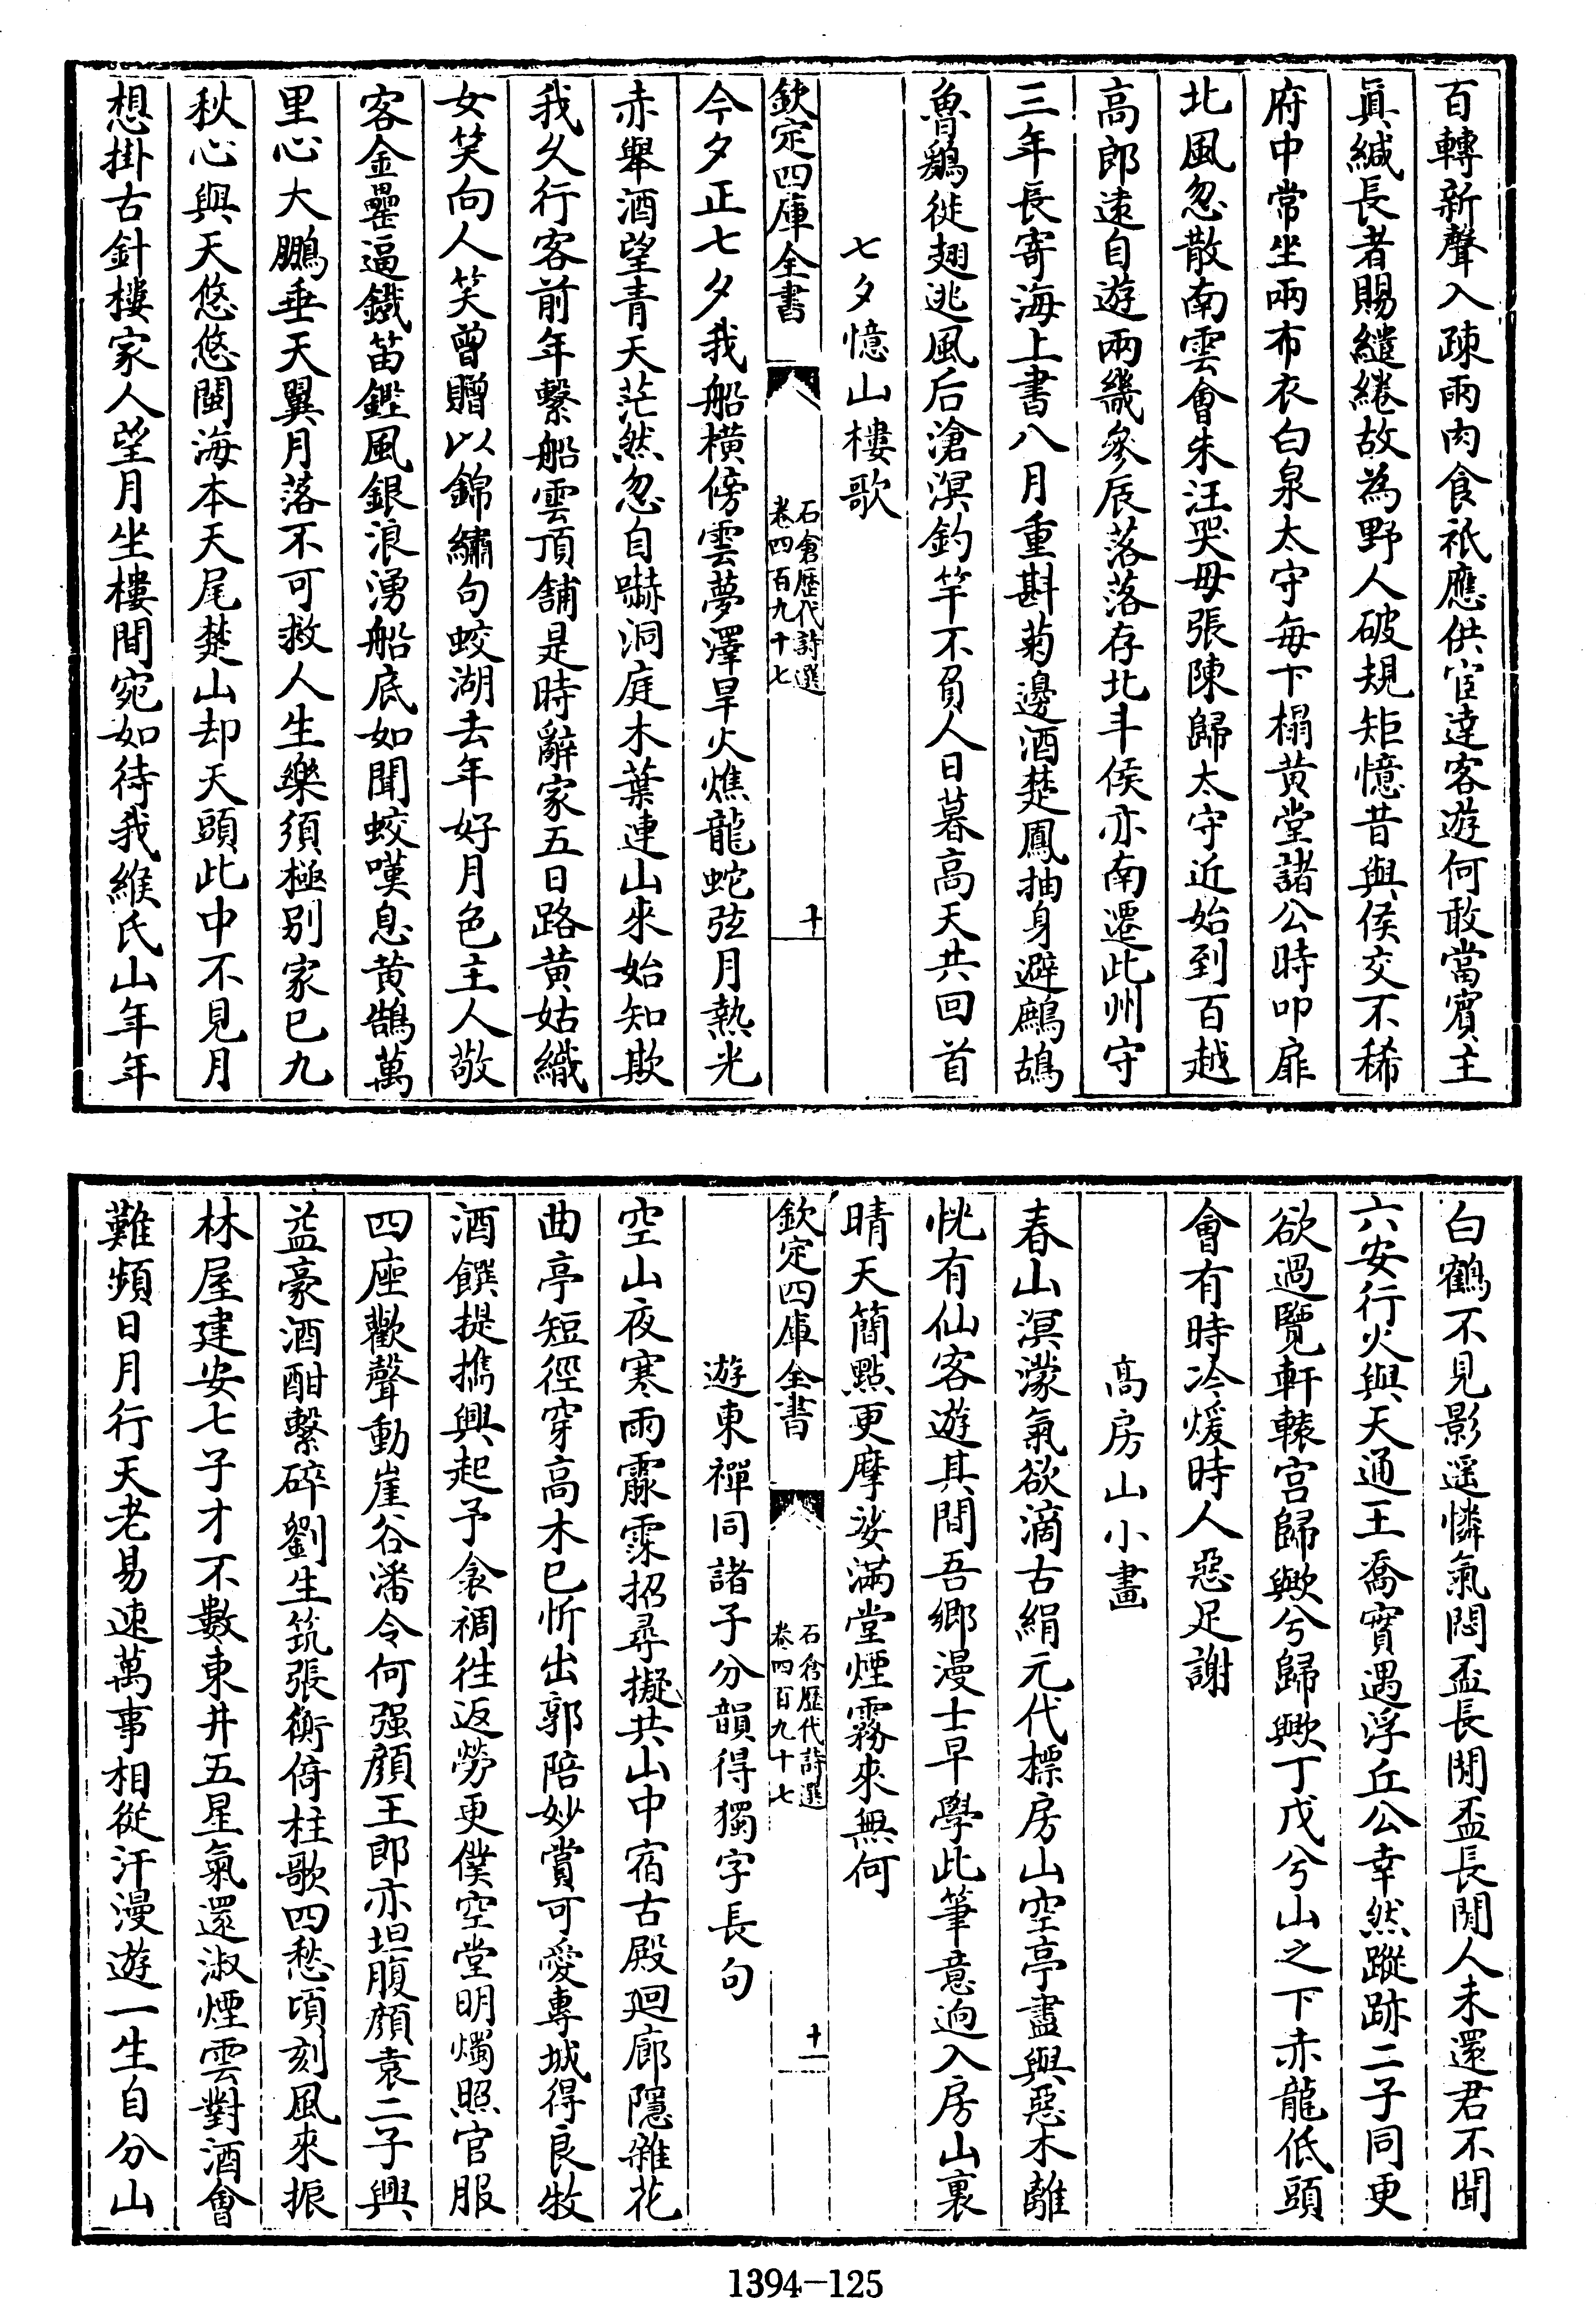 百轉新聲入疎雨肉食祇應供宦達客遊何敢當賓主
眞緘長者賜繾綣故為野人破規矩憶昔與侯交不稀
府中常坐兩布衣白泉太守每下榻黃堂諸公時叩扉
北風忽散南雲會朱汪哭毋張陳歸太守近始到百越
高郎逺自遊兩畿參辰落落存北斗侯亦南遷此州守
三年長寄海上書八月重斟菊邊酒楚鳳抽身避鷓鴣
魯鷄徙翅逃風后滄溟釣竿不負人日暮高天共回首
七夕憶山樓歌
欽定四庫全書
石倉歴代詩選
卷四百九十七
十
今夕正七夕我船橫傍雲夢澤旱火燋龍蛇弦月熱光
赤舉酒望青天茫然忽自嚇洞庭木葉連山來始知欺
我久行客前年繫船雲頂舖是時辭家五日路黃姑織
女笑向人笑曾贈以錦繡句蛟湖去年好月色主人敬
客金罍逼鐵笛鏗風銀浪湧船底如聞蛟嘆息黃鵠萬
里心大鵬垂天翼月落不可救人生樂須極别家已九
秋心與天悠悠閩海本天尾楚山却天頭此中不見月
想掛古針樓家人望月坐樓間宛如待我緱氏山年年
白鶴不見影遥憐氣悶盃長閒盃長閒人未還君不聞
六安行火與天通王喬實遇浮丘公幸然蹤跡二子同更
欲過覽軒轅宫歸歟兮歸歟丁戊兮山之下赤龍低頭
會有時冷煖時人惡足謝
高房山小畫
春山溟濛氣欲滴古絹元代標房山空亭盡與惡木離
恍有仙客遊其間吾鄉漫士早學此筆意逈入房山裏
晴天簡點更摩娑滿堂煙霧來無何
欽定四庫全書
石倉歴代詩選
卷四百九十七
十一
遊東禪同諸子分韻得獨字長句
空山夜寒雨霢霂招尋擬共山中宿古殿廻廊隱雜花
曲亭短徑穿高木已忻出郭陪妙賞可愛專城得良牧
酒饌提攜興起予衾裯徃返勞更僕空堂明燭照官服
四座歡聲動崖谷潘令何强顔王郎亦坦腹顔袁二子興
益豪酒酣繫碎劉生筑張衡倚柱歌四愁頃刻風來振
林屋建安七子才不數東井五星氣還淑煙雲對酒會
難頻日月行天老易速萬事相從汗漫遊一生自分山
1394-125